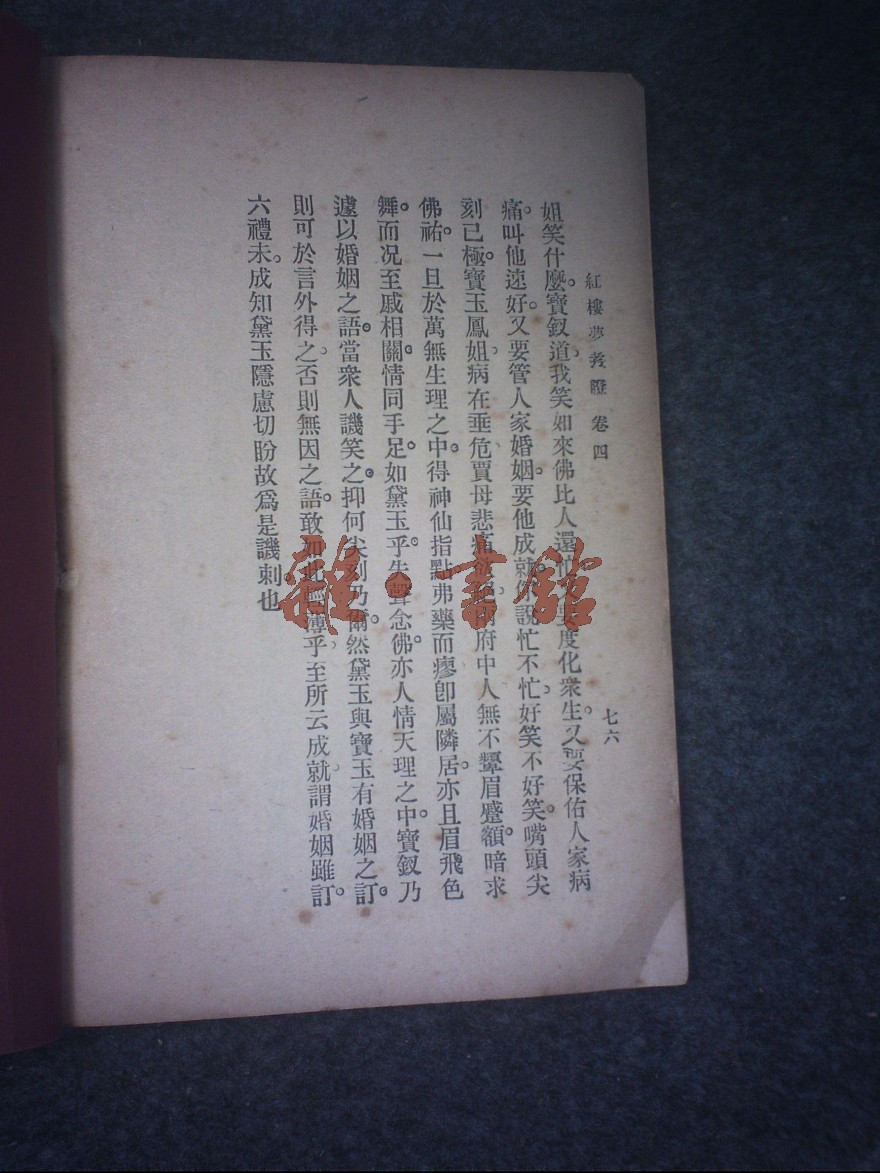 紅樓夢考證 卷四
七六
姐笑什麼。寶釵道、我笑如來佛比人還忙、要度化衆生。又要保佑人家病
痛。叫他速好。又要管人家婚姻。要他成就。說忙不忙、好笑不好笑。嘴頭尖
刻已極。寶玉鳳姐病在垂危、賈母悲痛欲絕、府中人無不顰眉蹙額。暗求
佛祐。一旦於萬無生理之中。得神仙指點弗藥而瘳卽屬隣居。亦且眉飛色
舞。而况至戚相關。情同手足。如黛玉乎。失聲念佛。亦人情天理之中。寶釵乃
遽以婚姻之語。當衆人譏笑之。抑何尖刻乃爾。然黛玉與寶玉有婚姻之訂。
則可於言外得之、否則無因之語。敢如此輕薄乎、至所云成就、謂婚姻雖訂。
六禮未。成知黛玉隱慮切盼故爲是譏刺也
雜·書館